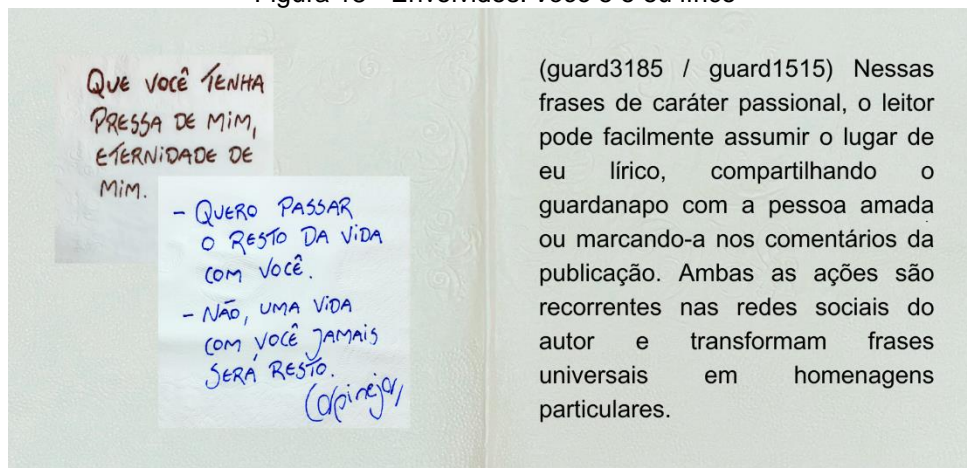 Figura - Envolvidos: você e o eu lírico
QUE VOCÊ TENHA
PRESSA DE MIM,
ETERNIDADE DE
MIM.
- QUERO PASSAR
O RESTO DA VIDA
COM VOCÊ.
- NÃO, UMA VIDA
COM VOCÊ JAMAIS
SERÁ RESTO.
Carpinejar
(guard3185 / guard1515) Nessas
frases de caráter passional, o leitor
pode facilmente assumir o lugar de
eu lírico, compartilhando o
guardanapo com a pessoa amada
ou marcando-a nos comentários da
publicação. Ambas as ações são
recorrentes nas redes sociais do
autor e transformam frases
universais em homenagens
particulares.